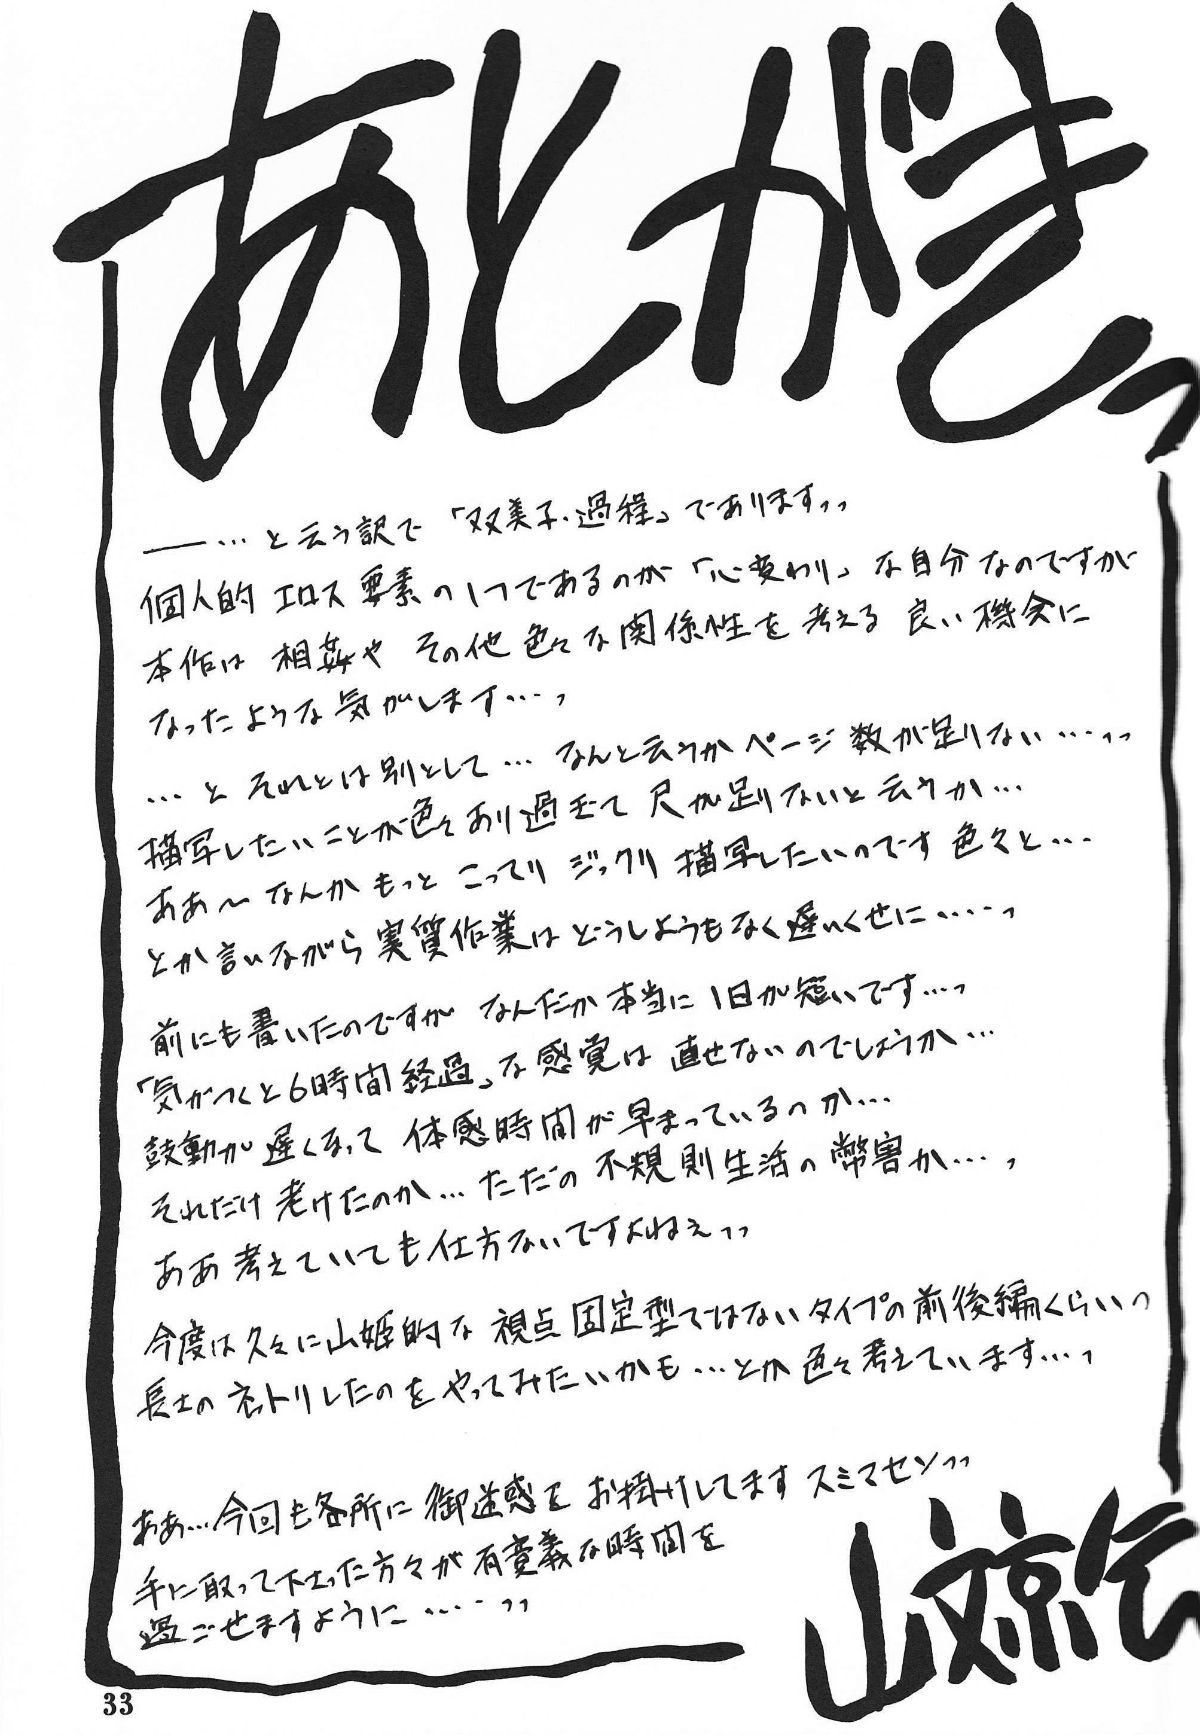 あとがきっ
――…と云う訳で「双美子・過程」でありますっっ
個人的エロス要素の1つであるのが「心変わり」な自分なのですが
本作は相姦やその他色々な関係性を考える良い機会に
なったような気がします…っ
…とそれとは別として…なんと云うかページ数が足りない…っっ
描写したいことが色々あり過ぎて尺が足りないと云うか…
ああ〜なんかもっとこってりジックリ描写したいのです色々と…
とか言いながら実質作業はどうしようもなく遅いくせに……っ
前にも書いたのですがなんだか本当に1日が短いです…っ
「気がつくと6時間経過」な感覚は直せないのでしょうか…
鼓動が遅くなって体感時間が早まっているのか…
それだけ老けたのか…ただの不規則生活の弊害か…っ
ああ考えていても仕方ないですよねぇっっ
今度は久々に山姫的な視点固定型ではないタイプの前後編くらいっ
長さのネトリしたのをやってみたいかも…とか色々考えています…っ
ああ…今回も各所に御迷惑をお掛けしてますスミマセンっっ
手に取って下さった方々が有意義な時間を
過ごせますように……っっ
山文京伝
33